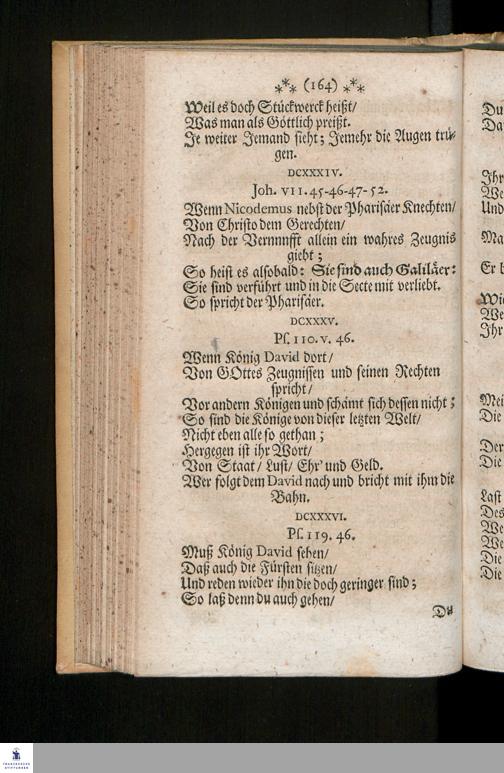 ⁂ (164) ⁂
Weil es doch Stückwerck heißt/
Was man als Göttlich preißt.
Je weiter Jemand sieht; Jemehr die Augen trü-
gen.
DCXXXIV.
Joh. VII. 45-46-47-52.
Wenn Nicodemus nebst der Pharisäer Knechten/
Von Christo dem Gerechten/
Nach der Vernnnfft allein ein wahres Zeugnis
giebt;
So heist es alsobald: Sie sind auch Galiläer:
Sie sind verführt und in die Secte mit verliebt.
So spricht der Pharisäer.
DCXXXV.
Ps. 110. v. 46.
Wenn König David dort/
Von GOttes Zeugnissen und seinen Rechten
spricht/
Vor andern Königen und schämt sich dessen nicht;
So sind die Könige von dieser letzten Welt/
Nicht eben alle so gethan;
Hergegen ist ihr Wort/
Von Staat/ Lust/ Ehr' und Geld.
Wer folgt dem David nach und bricht mit ihm die
Bahn.
DCXXXVI.
Ps. 119. 46.
Muß König David sehen/
Daß auch die Fürsten sitzen/
Und reden wieder ihn die doch geringer sind;
So laß denn du auch gehen/
Du
Du
Ihr
We
Und
Ma
Er
We
Ihr
Mei
Die
Der
Die
Last
Des
We
We
Die
Die
FRANCKESCHE
STIFTUNGEN